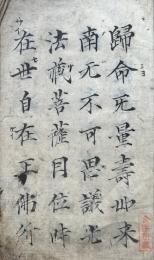 歸命无量壽如來
南无不可思議光
法蔵菩薩因位時
在世自在王佛所